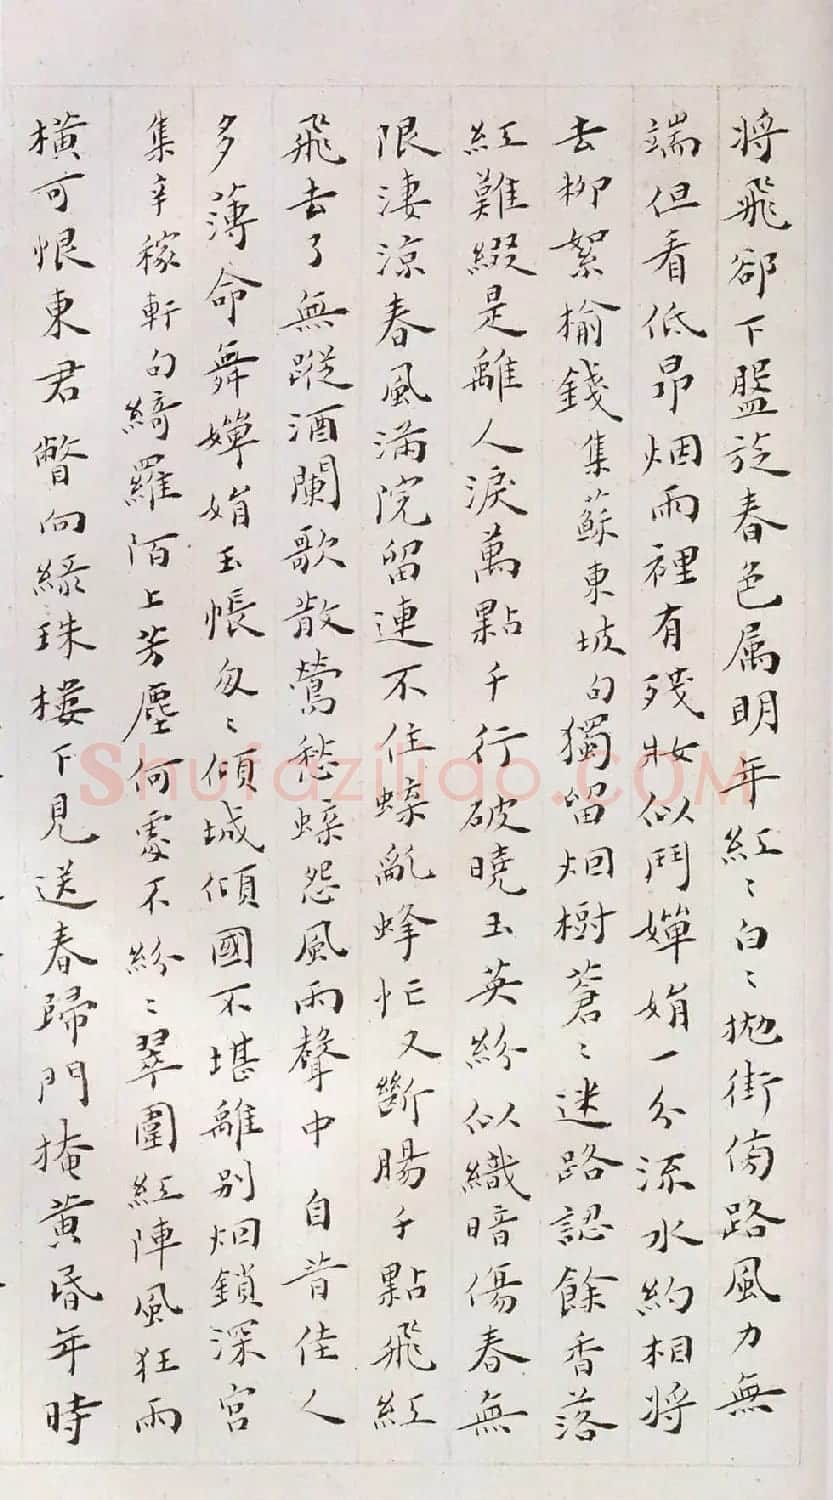 將飛卻下盤旋春色属明年紅〻白〻抛街傍路風力無
端但看低昂烟雨裡有殘妝似鬥嬋娟一分流水約相將
去柳絮榆錢集蘇東坡句獨留烟樹蒼〻迷路認餘香落
紅難綴是離人淚萬點千行破曉玉英紛似織暗傷春無
限淒涼春風滿院留連不住蝶亂蜂忙又斷腸千點飛紅
飛去了無蹤酒闌歌散鶯愁蝶怨風雨聲中自昔佳人
多薄命舞嬋娟玉帳匆〻傾城傾國不堪離別烟鎖深宮
集辛稼軒句綺羅陌上芳塵何處不紛〻翠圍紅陣風狂雨
橫可恨東君瞥向綠珠樓下見送春歸門掩黃昏年時
Shufaziliao.COM